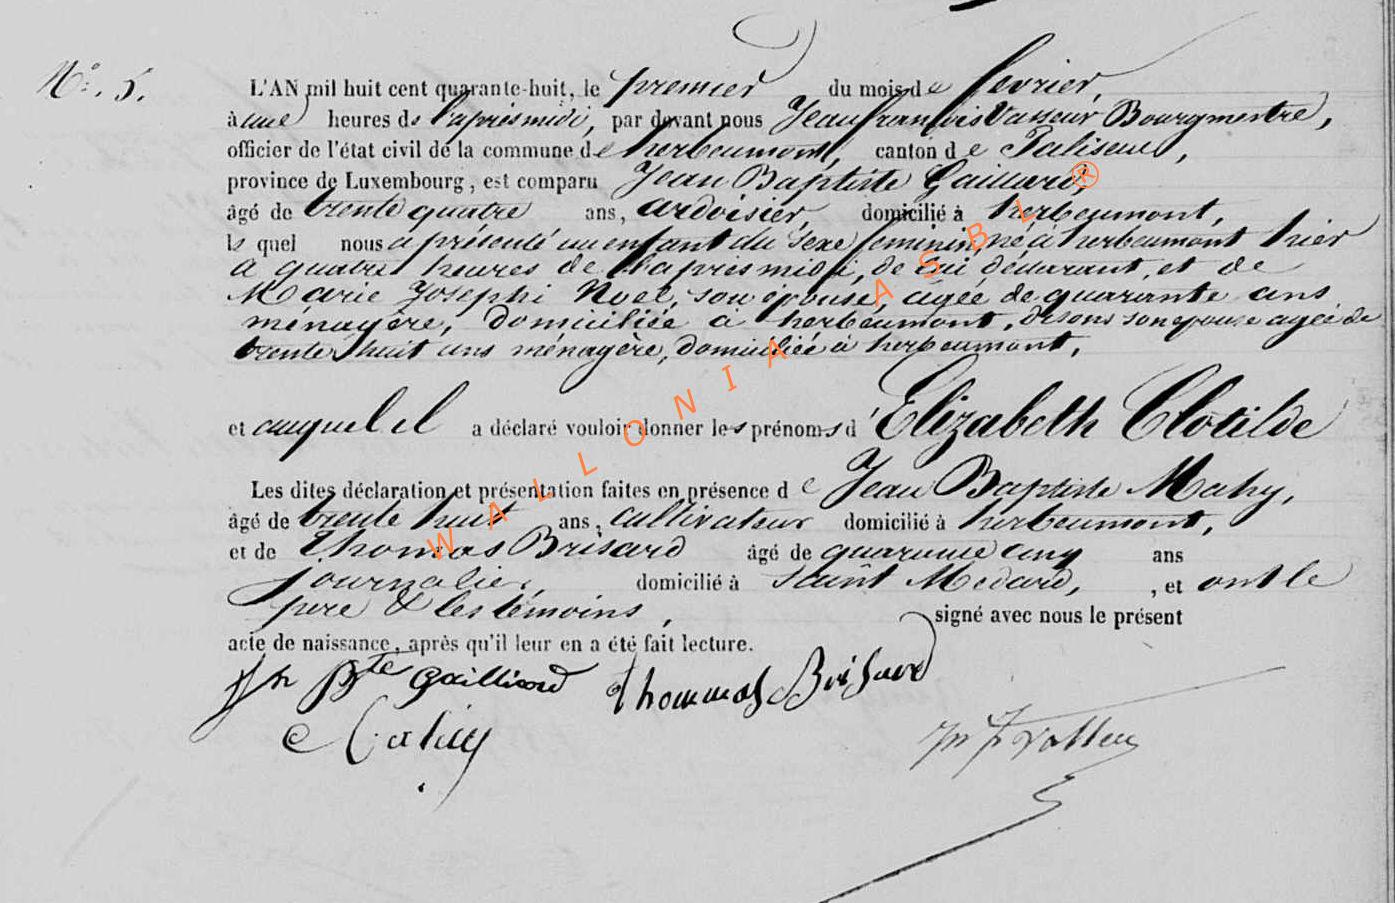 No. 5.
L'AN mil huit cent quarante-huit, le premier du mois de fevrier,
à une heures de l'aprés midi, par devant nous Jean françois Vasseur Bourgmestre,
officier de l'état civil de la commune de herbeumont, canton de Paliseul,
province de Luxembourg, est comparu Jean Baptiste Gaillard,
âgé de trente quatre ans, ardoisier, domicilié à herbeumont,
le quel nous a présenté un enfant du sexe feminin né à herbeumont hier
à quatre heures de l'apres midi, de lui déclarant, et de
Marie Josephe Noel, son épouse, agée de quarante ans
ménagère, domiciliée à herbeumont, disons son epouse agée de
trente huit ans ménagère, domiciliée à herbeumont,
et auquel il a déclaré vouloir donner les prénoms d'Elizabeth Clotilde
Les dites déclaration et présentation faites en présence de Jean Baptiste Mahy,
âgé de trente huit ans, cultivateur domicilié à herbeumont,
et de Thomas Brisard âgé de quarante cinq ans
journalier, domicilié à saint Medard, , et ont le
pere & les témoins, signé avec nous le présent
acte de naissance, après qu'il leur en a été fait lecture.
Jn Bte Gailliard Thommas Brisard
WALLONIA ASBL®